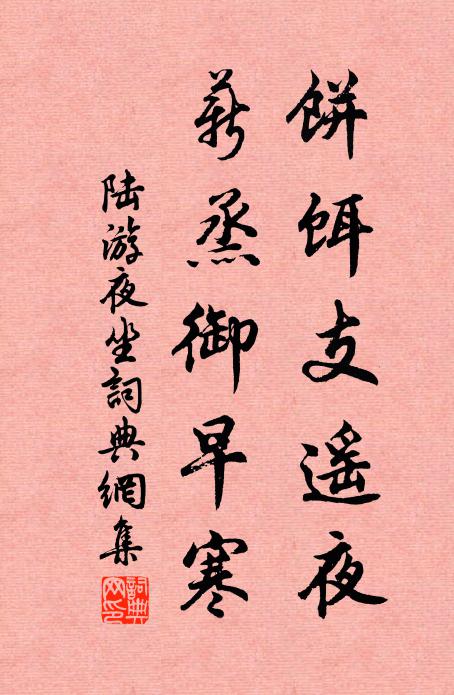 餅餌支遥夜
薪蒸御早寒
陆游夜坐詞典網集
詞典
网印